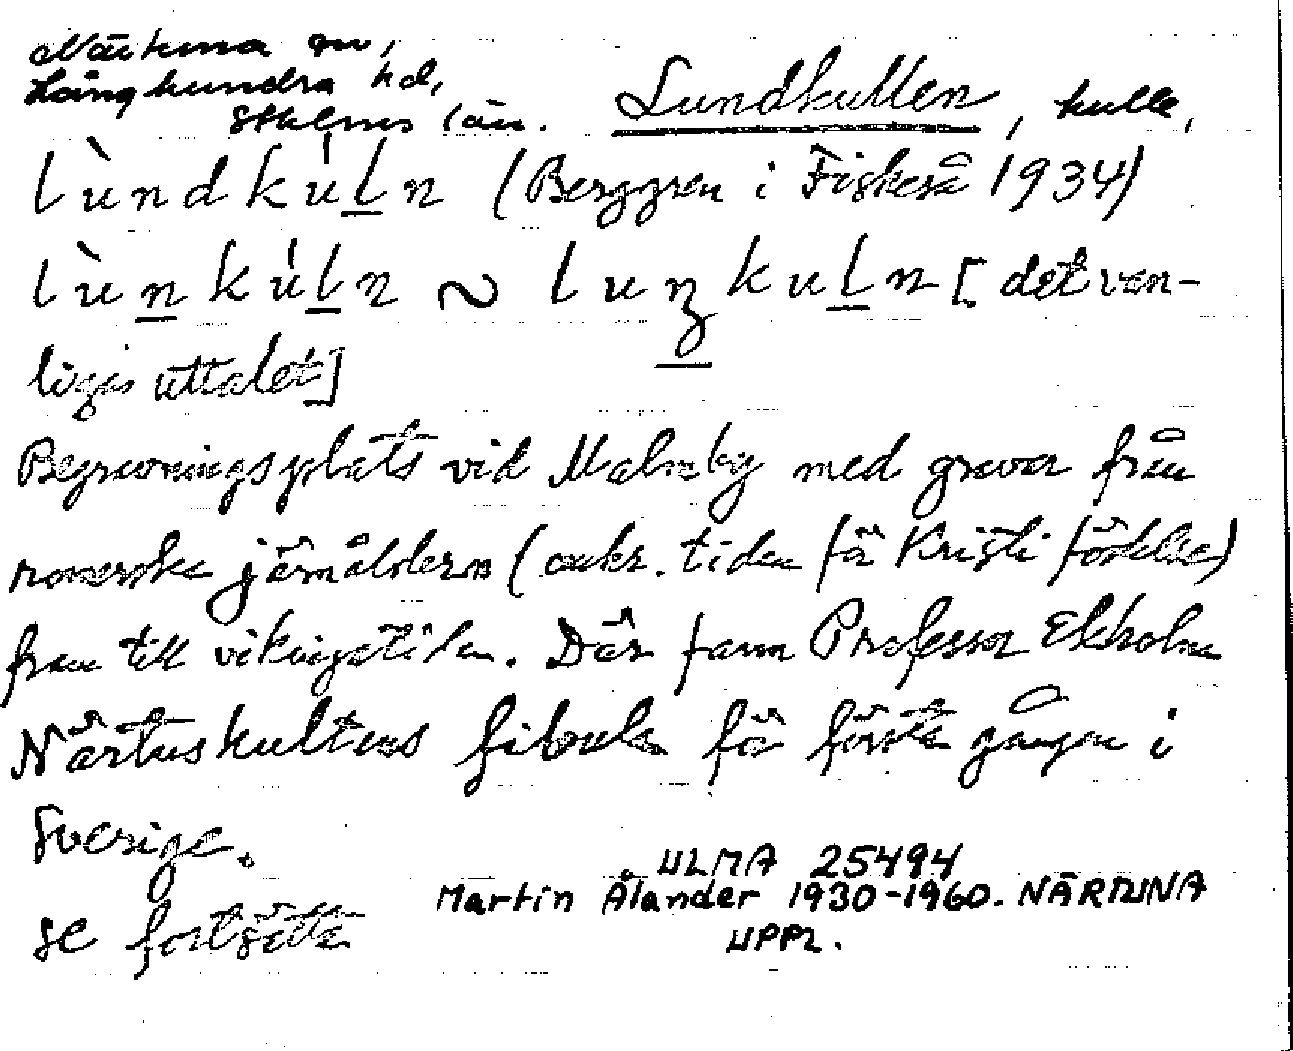 Närtuna sn,
Långhundra hd,
Sthlms län. Lundkullen, kulle,
lùndkúln (Berggren i Fiskeså 1934)
lùnkúln ~ luŋkuln [det van-
ligas uttalet]
Begravningsplats vid Malmby med gravar från
romerska järnåldern (omkr. tiden fö Kristi födelse)
fram till vikingatiden. Där fann Professor Ekholm
Närtuskulturens fibula fö första gången i
Sverige.
se fortsätta
ULMA 25494
Martin Ålander 1930-1960. NÄRTUNA
UPPL.